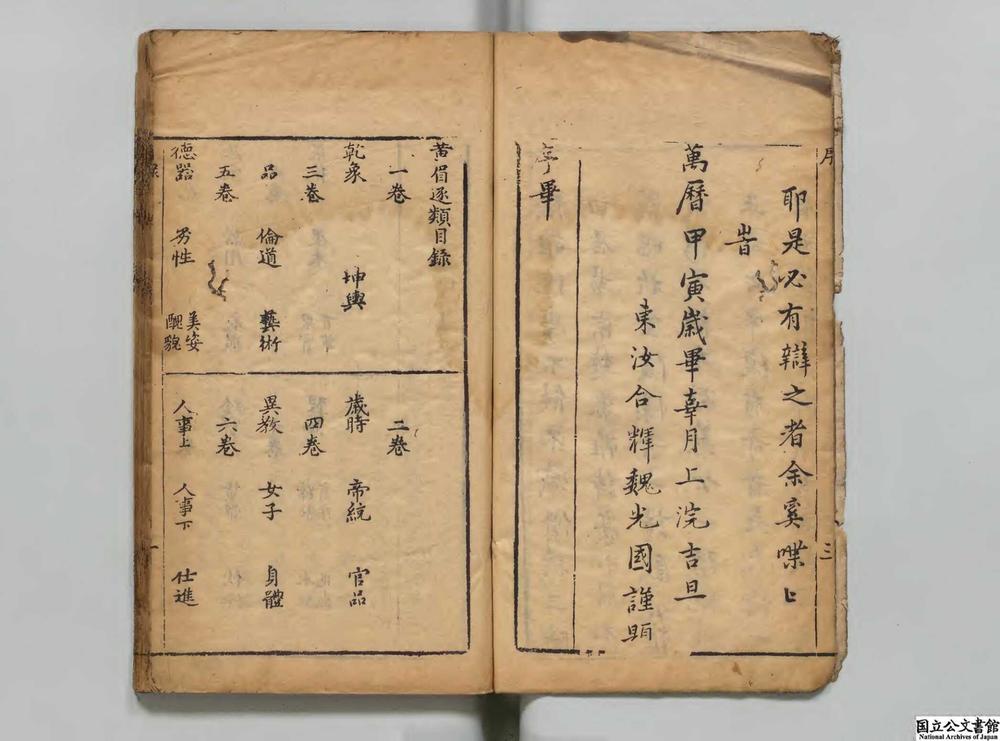 序
三
耶是必有辯之者余奚喋〻
旹
萬曆甲寅歲畢辜月上浣吉旦
東汝合輝魏光國謹題
序畢
黃眉逐類目錄
一卷
乾象 坤輿
三卷
品 倫道 藝術
五卷
德器 男性 美姿 醜貌
二卷
歲時 帝統 官品
四卷
異教 女子 身體
六卷
人事上 人事下 仕進
一
国立公文書館
National Archives of Japan